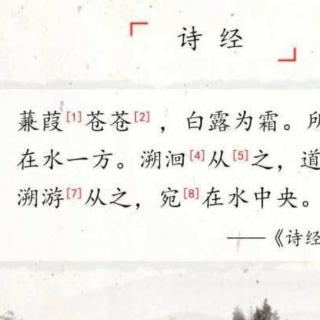 诗经
蒹葭[1]苍苍[2]，白露为霜。所
在水一方。溯洄[4]从[5]之，道
溯游[7]从之，宛[8]在水中央。
——《诗经